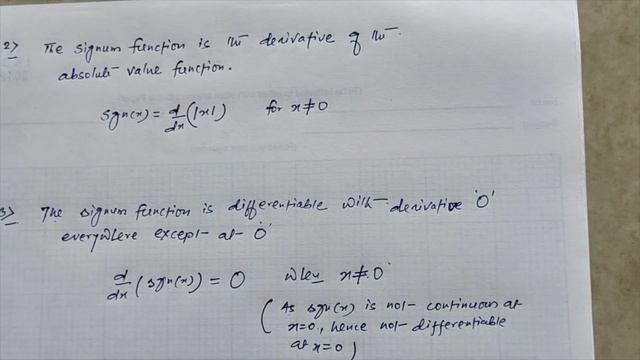 2> The signum function is the derivative of the
absolute value function.
sgn(x) = d/dx (|x|) for x ≠ 0
3> The signum function is differentiable with derivative '0'
everywhere except at '0'
d/dx (sgn(x)) = 0 when x ≠ 0
( As sgn(x) is not continuous at
x=0, hence not differentiable
at x=0 )